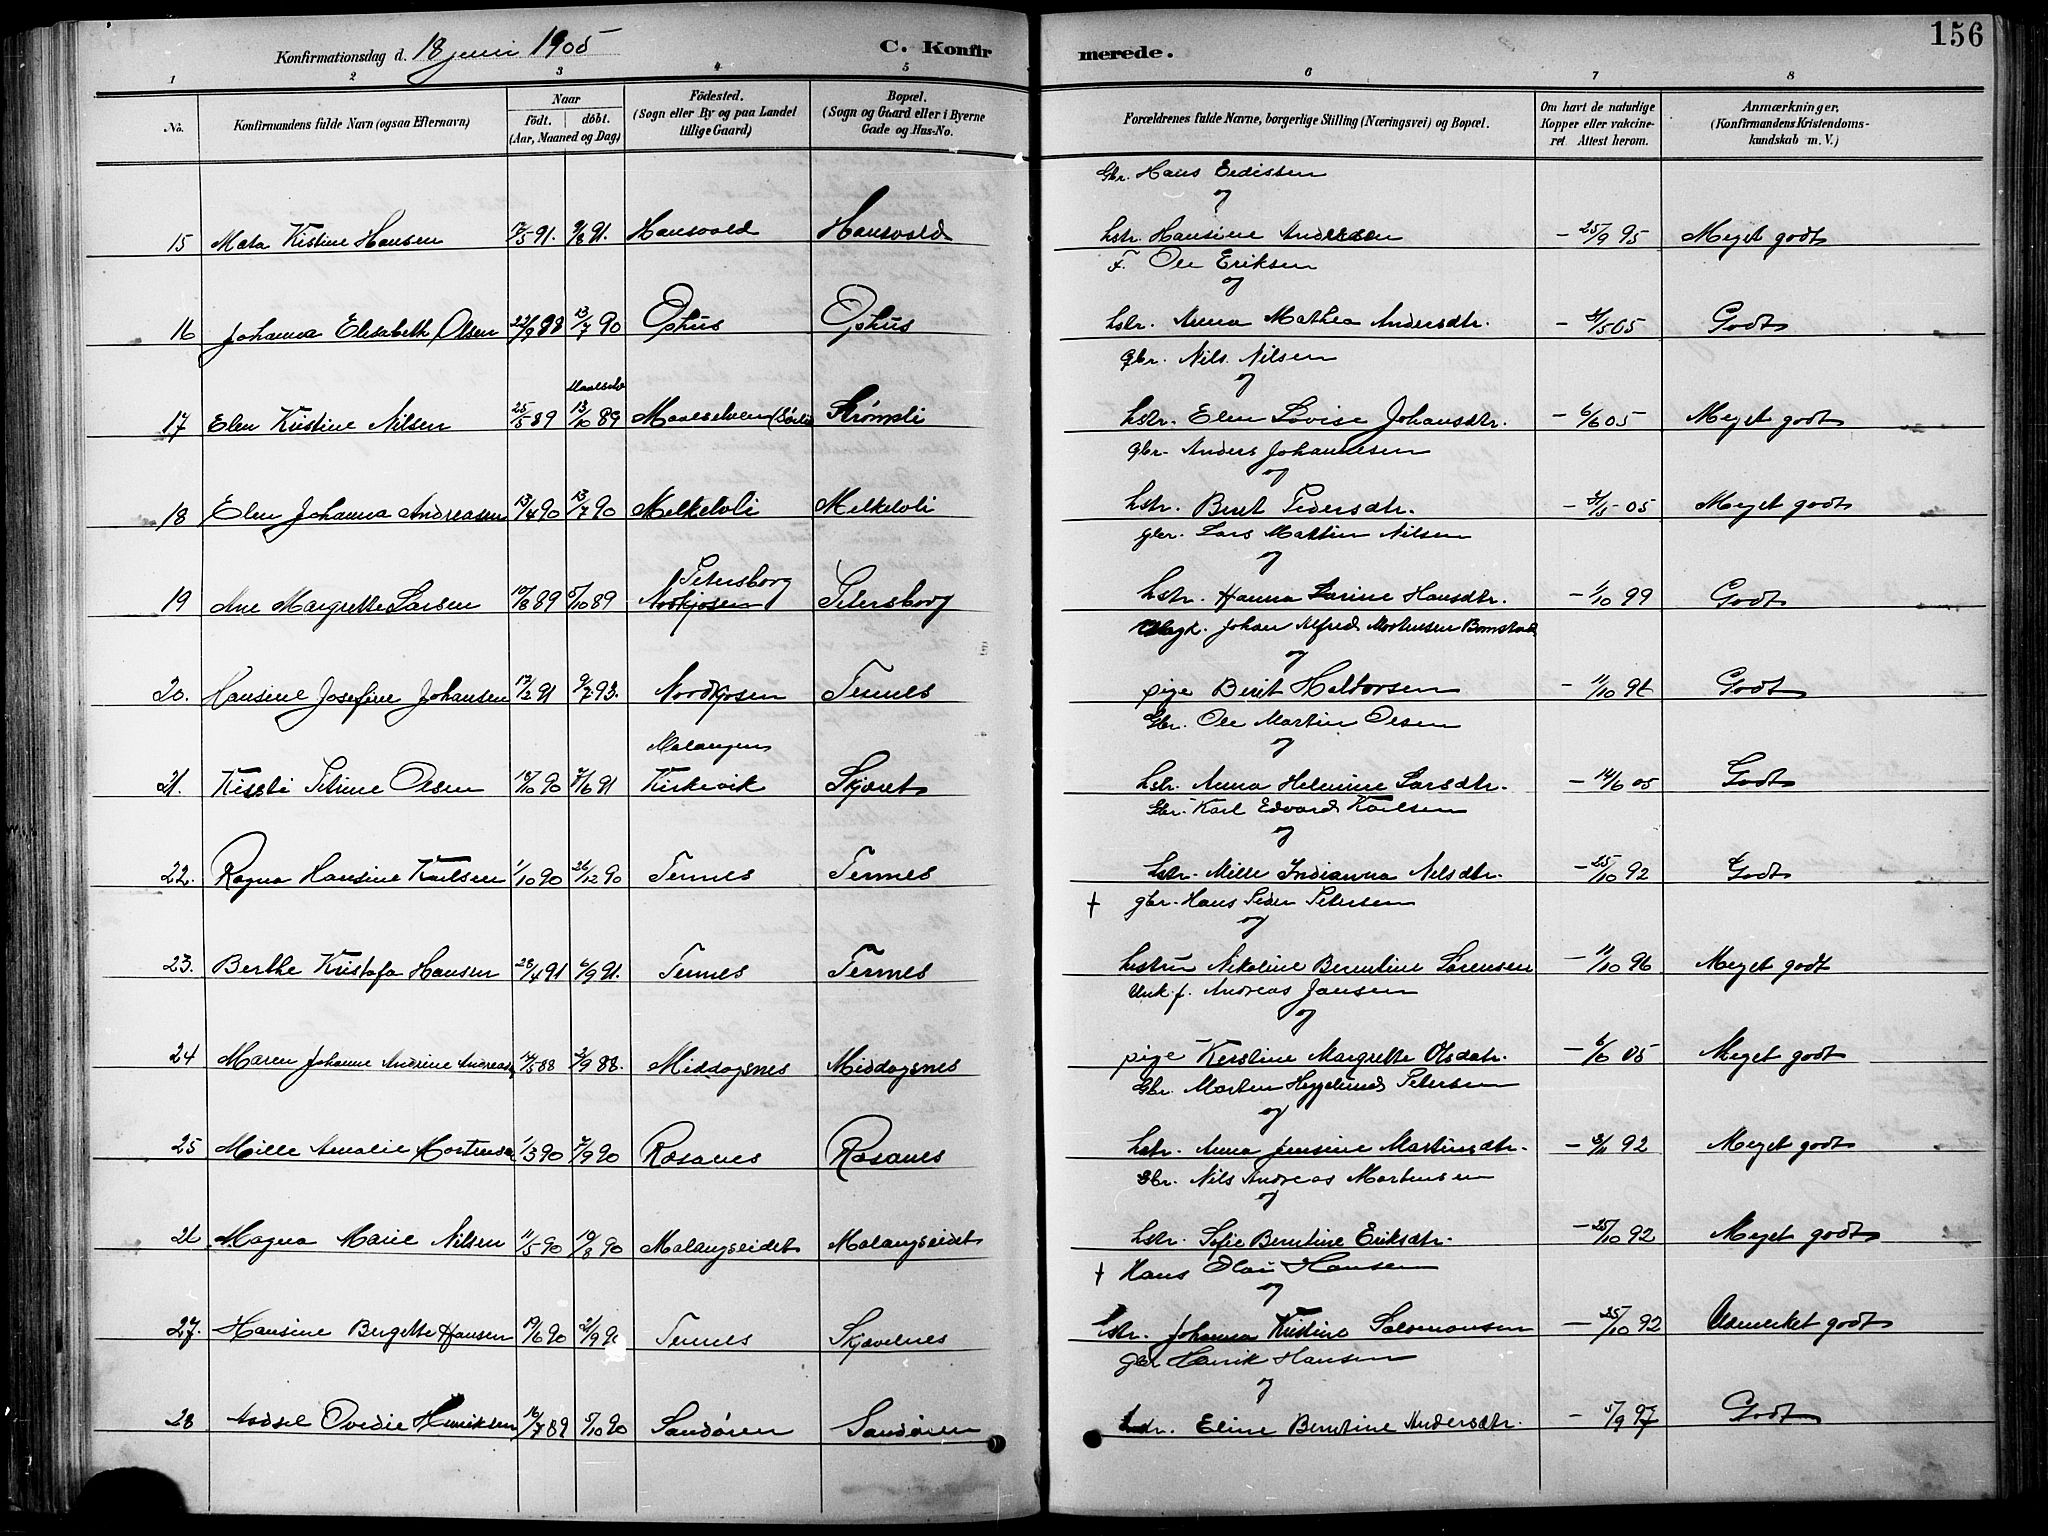 156
Konfirmationsdag d. 18 juni 1905 C. Konfirmerede.
1 2 3 4 5 6 7 8
No. Konfirmandens fulde Navn (ogsaa Efternavn) Naar født. døbt. (Aar, Maaned og Dag) Födested. (Sogn eller By og paa Landet tillige Gaard) Bopæl. (Sogn og Gaard eller i Byerne Gade og Hus-No. Forældrenes fulde Navne, borgerlige Stilling (Næringsvei) og Bopæl. Om havt de naturlige Kopper eller vakcineret Attest herom. Anmærkninger, (Konfirmandens Kristendomskundskab m. V.)
Gbr. Hans Eedissen
og
15 Meta Kistine Hansen 17/5 91. 9/8 91. Hansvold Hansvold hstr. Hansine Andersen - 25/9 95 Meget godt
F. Ole Eriksen
og
16 Johanna Elisabeth Olsen 22/9 88 13/7 90 Ophus Ophus hstr. Anna Mathea Andersdtr. - 31/5 05 Godt
gbr. Nils Nilsen
og
Maalselv
17 Elen Kristine Nilsen 25/5 89 13/10 89 Maalselven Strømsli hstr. Elen Lovise Johansdtr. - 6/6 05 Meget godt
gbr. Anders Johannesen
og
18 Elen Johanna Andreasen 13/4 90 13/7 90 Melkelvli Melkelvli hstr. Berit Pedersdtr. - 31/5 05 Meget godt
gbr. Lars Mathin Nilsen
og
Petersborg
19 Ane Margrethe Larsen 17/8 89 6/10 89 Nordkjosen Petersborg hstr. Hanna Larine Hansdtr. - 1/10 99 Godt
Ungk. Johan Alfred Mortensen Bomstad
og
20. Hansine Josefine Johansen 17/2 91 9/7 93. Nordkjosen Tennes pige Berit Heldorsen - 11/10 96 Godt
Gbr. Ole Martin Olsen
og
Malangen
21. Kirsti Petrine Olsen 18/10 90 7/6 91 Kirkevik Skjæret hstr. Anna Helmine Larsdtr. - 14/6 05 Godt
Gbr. Karl Edvard Karlsen
og
22. Ragna Hansine Karlsen 1/10 90 26/12 90 Tennes Tennes hstr. Mille Indianna Nilsdtr. - 25/10 92 Godt
† gbr. Hans Peder Petersen
og
23. Berthe Kristofa Hansen 28/4 91 6/9 91. Tennes Tennes hustru Nikoline Berntine Sørensen - 11/10 96 Meget godt
Unk. f. Andreas Jansen
og
24 Maren Johanne Andrine Andreasen 14/5 88 2/9 88. Middagsnes Middagsnes pige Kerstine Margrethe Olsdatr. - 6/6 05 Meget godt
Gbr. Morten Heggelund Petersen
og
25 Mille Amalie Mortensen 1/3 90 7/9 90 Rosanes Rosanes hstr. Anna Jensine Martinsdtr. - 8/11 92 Meget godt
Gbr. Nils Andreas Mortensen
og
26 Magna Marie Nilsen 11/5 90 19/8 90 Malangseidet Malangseidet hstr. Sofie Berntine Eriksdtr. - 25/10 92 Meget godt
† Hans Olai Hansen
og
27. Hansine Bergitte Hansen 19/6 90 21/9 90 Tennes Skjævelnes hstr. Johanna Kristine Salomonsen - 25/10 92 Udmerket godt
gbr Henrik Hansen
og
28 Aodsel Ovedie Henriksen 16/7 89 5/10 90 Sandøren Sandøren hstr. Eline Berntine Andersdtr. - 5/9 97 Godt